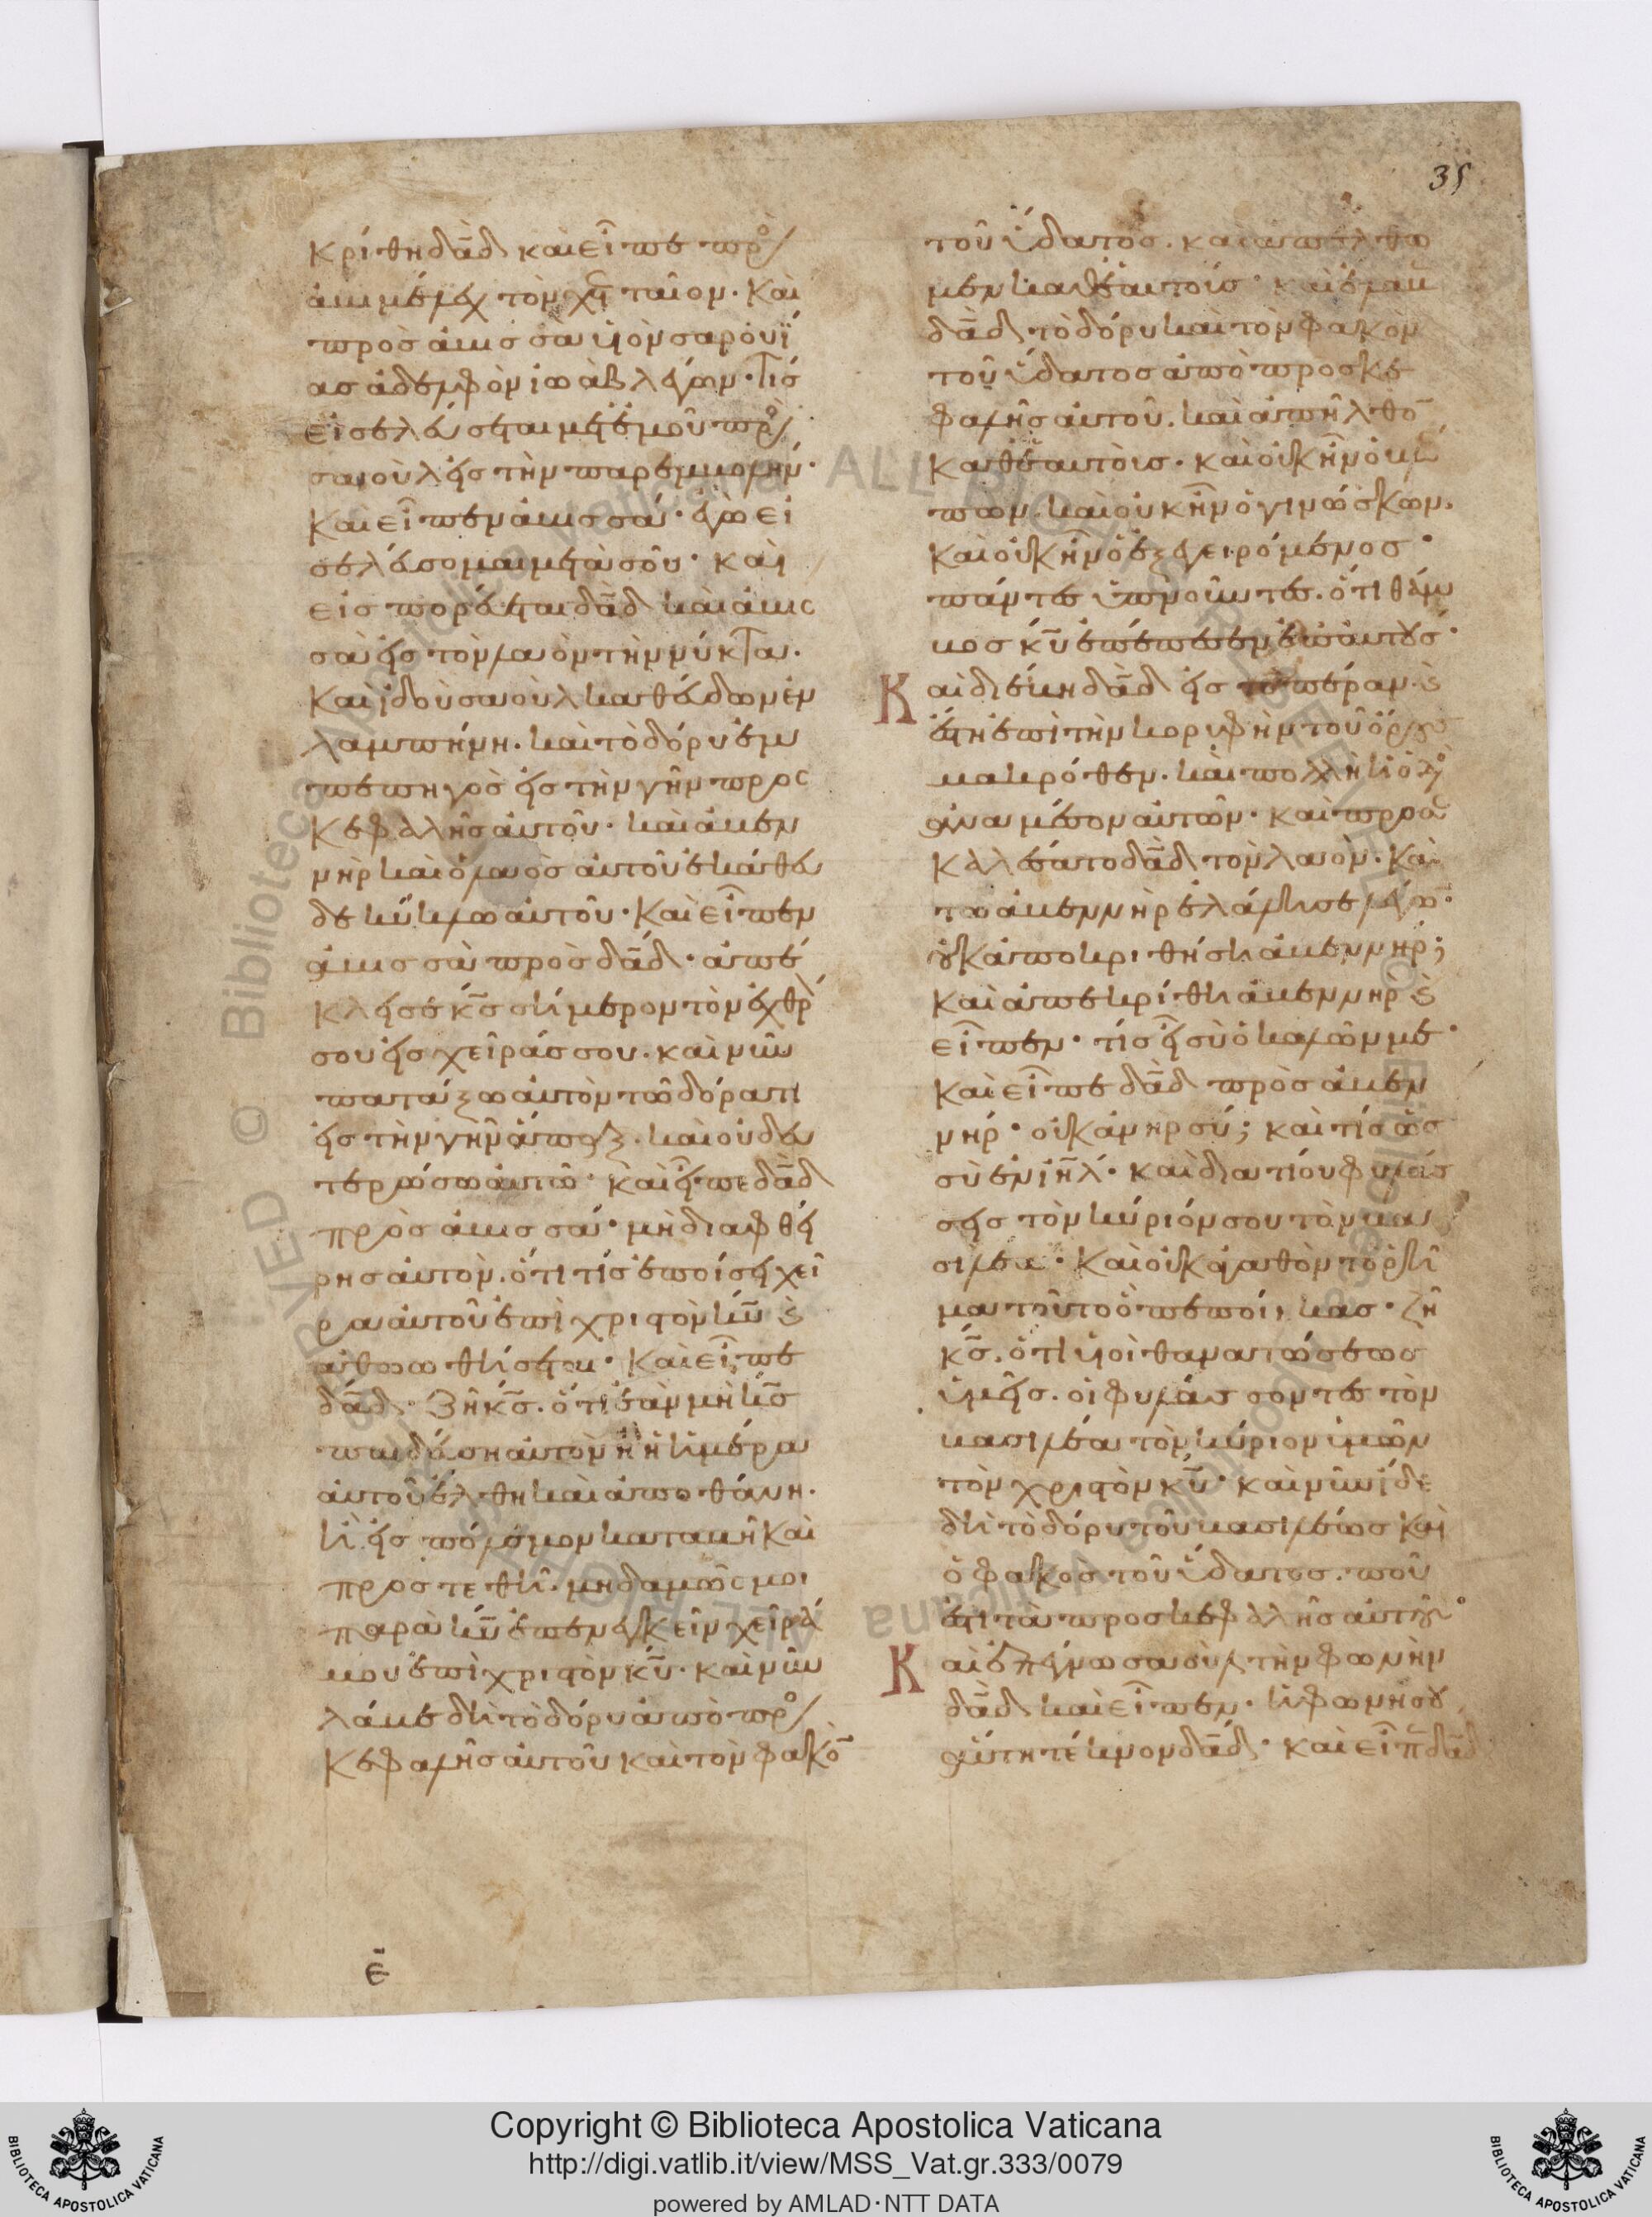 35
κρίθη δᾱδ καὶ εἶπε πρὸ
αβιμέλεχ τὸν χετταῖον. Καὶ
πρὸς ἀβεσσὰ υἱὸν σαρουΐ
ας ἀδελφὸν ἰωὰβ λέγων. Τίς
εἰσελεύσεται μετ' ἐμοῦ πρὸ
σαοὺλ εἰς τὴν παρεμβολήν.
Καὶ εἶπεν ἀβεσσά. ἐγὼ εἰ
σελεύσομαι μετὰ σοῦ. καὶ
εἰσπορεύεται δᾱδ καὶ ἀβεσ
σὰ εἰς τὸν λαὸν τὴν νύκτα.
Καὶ ἰδοὺ σαοὺλ καθεύδων ἐν
λαμπήνη. καὶ τὸ δόρυ ἐμ
πεπηγὸς εἰς τὴν γῆν προς
κεφαλῆς αὐτοῦ. καὶ ἀβεν
νὴρ καὶ ὁ λαὸς αὐτοῦ ἐκάθευ
δε κύκλω αὐτοῦ. Καὶ εἶπεν
ἀβεσσὰ πρὸς δᾱδ. ἀπέ
κλεισε κ̄ς σήμερον τὸν ἐχθρ
σου εἰς χεῖράς σου. καὶ νῦν
πατάξω αὐτὸν τῶ δόρατι
εἰς τὴν γῆν ἅπαξ. καὶ οὐ δευ
τερώσω αὐτῶ. Καὶ εἶπε δᾱδ
πρὸς ἀβεσσά. μὴ διαφθεί
ρης αὐτον. ὅτι τίς ἐποίσει χεῖ
ρα αὐτοῦ ἐπὶ χριστὸν κ̄υ ϗ
ἀθωωθήσεται. Καὶ εἶπε
δᾱδ. Ζῆ κ̄ς. ὅτι ἐὰν μὴ κ̄ς
παιδεύση αὐτὸν ἢ ἡ ἡμέρα
αὐτοῦ ἔλθη καὶ ἀποθάνη.
ἢ εἰς πόλεμον καταβῆ καὶ
προστεθῆ. μηδαμῶς μοι
παρὰ κ̄υ ἐπενεγκεῖν χεῖρά
μου ἐπὶ χριστὸν κ̄υ. καὶ νῦν
λάβε δὴ τὸ δόρυ ἀπὸ πρὸ
κεφαλῆς αὐτοῦ καὶ τὸν φακὸ
ε̄
τοῦ ὕδατος. καὶ ἀπέλθω
μεν καθ' ἑαυτοίς. καὶ ἔλαβ
δᾱδ τὸ δόρυ καὶ τὸν φακὸν
τοῦ ὕδατος ἀπὸ προσκε
φαλῆς αὐτοῦ. καὶ ἀπῆλθο
καθ' ἑαυτοις. καὶ οὐκ ἦν ὁ βλέ
πων. καὶ οὐκ ἦν ὁ γινώσκων.
καὶ οὐκ ἦν ὁ ἐξεγειρόμενος.
πάντες ὑπνοῦντες. ὅτι θάμ
βος κ̄υ ἐπέπεσεν ἐπ' αὐτούς.
Καὶ διέβη δᾱδ εἰς τὸ πέραν. ϗ
ἔστη ἐπὶ τὴν κορυφὴν τοῦ ὄρου
μακρόθεν. καὶ πολλὴ ἡ ὁδὸ
ἀνα μέσον αὐτῶν. καὶ προσ
καλέσατο δᾱδ τὸν λαὸν. Καὶ
τω ἀβεννὴρ ἐλάλησε λέγω.
οὐκ ἀποκριθήση ἀβεννηρ;
Καὶ ἀπεκρίθη ἀβεννηρ ϗ
εἶπεν. τίς εἶ σὺ ὁ καλῶν με.
Καὶ εἶπε δᾱδ πρὸς ἀβεν
νήρ. οὐκ ἀνὴρ σύ; καὶ τίς ὡς
σὺ ἐν ῑηλ. καὶ διατί οὐ φυλάσ
σεις τὸν κύριόν σου τὸν βα
σιλέα. Καὶ οὐκ ἀγαθὸν τὸ ρῆ
μα τοῦτο ὃ πεποίηκας. ζῆ
κ̄ς. ὅτι υἱοὶ θανατώσεως
ὑμεῖς. οἱ φυλάσσοντες τὸν
βασιλέα τὸν κύριον ὑμῶν
τὸν χριστὸν κ̄υ. καὶ νῦν ἴδε
δὴ τὸ δόρυ τοῦ βασιλέως καὶ
ὁ φακὸς τοῦ ὕδατος. ποῦ
ἐστι τὰ προσκεφαλῆς αὐτοῦ.
Καὶ ἐπέγνω σαοὺλ τὴν φωνὴν
δᾱδ καὶ εἶπεν. ἡ φωνή σου
αὕτη τέκνον δᾱδ. καὶ εἶπ δᾱδ
Copyright © Biblioteca Apostolica Vaticana
http://digi.vatlib.it/view/MSS_Vat.gr.333/0079
powered by AMLAD·NTT DATA